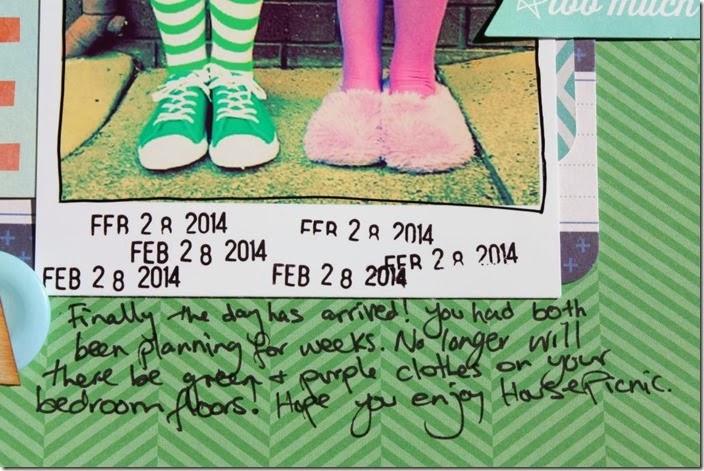 too much
FEB 28 2014 FEB 28 2014
FEB 28 2014 FEB 28 2014
FEB 28 2014 FEB 28 2014
Finally the day has arrived! You had both
been planning for weeks. No longer will
there be green & purple clothes on your
bedroom floors! Hope you enjoy House Picnic.